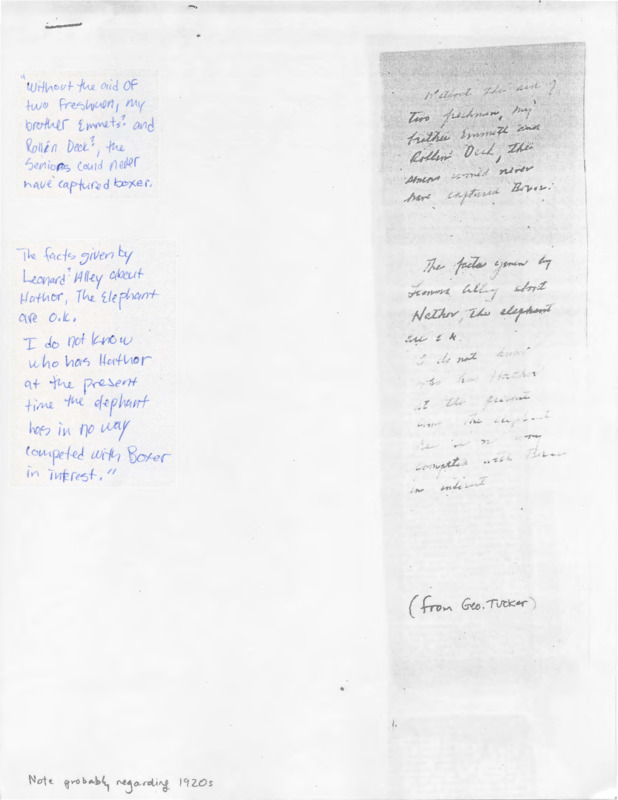 "Without the aid of
two freshmen, my
brother Emmets? and
Rollin Dock?, the
Seniors could never
have captured boxer.
The facts given by
Leonard? Alley about
Hathor, The Elephant
are O.K.
I do not know
who has Hathor
at the present
time the elephant
has in no way
competed with Boxer
in interest."
Without the aid of
two freshmen, my
brother Emmett and
Rollin Dock, the
seniors could never
have captured Boxer.
The facts given by
Alley about
Hathor, the elephant
are o.k.
I do not know
who has Hathor
at the present
time the elephant
has in no way
competed with Boxer
in interest
(from Geo. Tucker)
1.
Note probably regarding 1920s